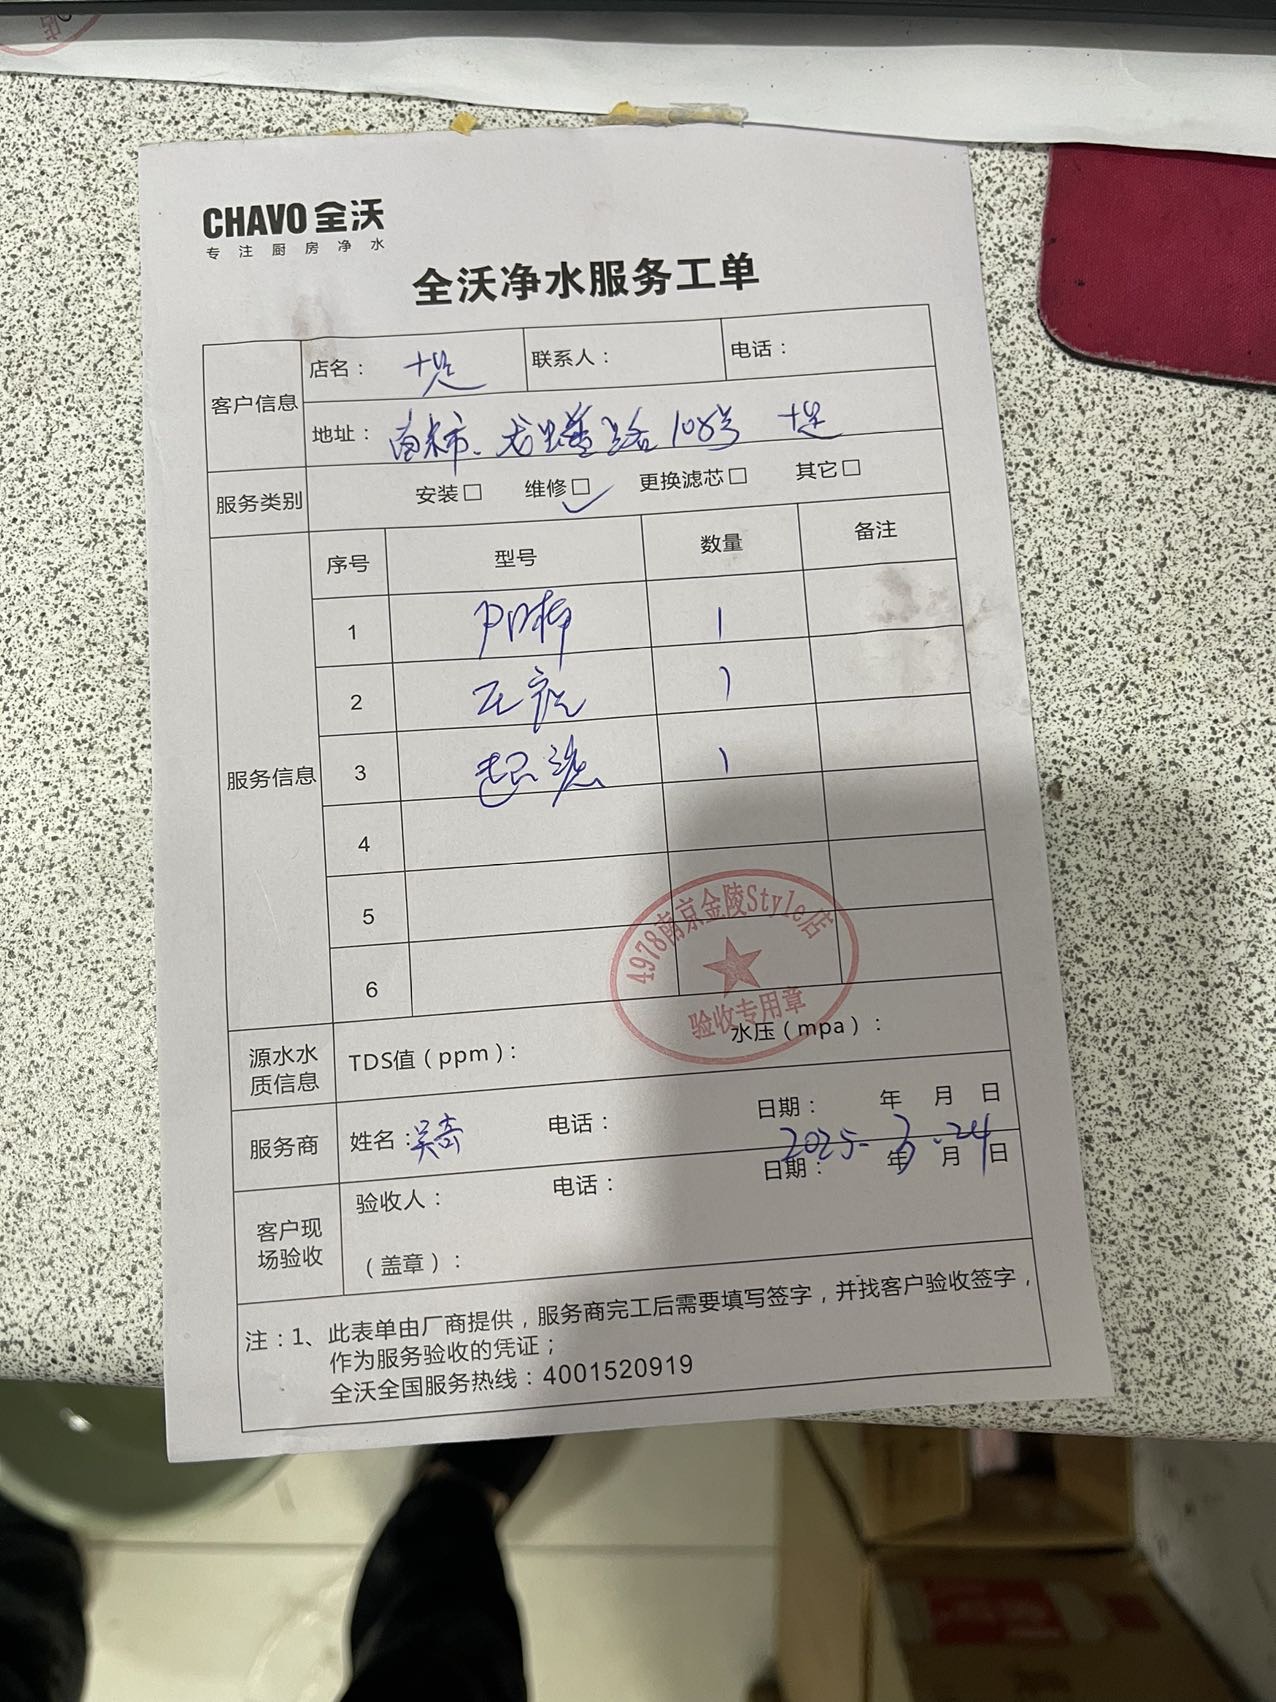 CHAVO 全沃
专注厨房净水
全沃净水服务工单
客户信息
店名：
联系人：
电话：
地址： 108号
服务类别
安装□ 维修□✓ 更换滤芯□ 其它□
服务信息
序号 型号 数量 备注
1 1
2 1
3 超滤 1
4
5
6
4978南京金陵Style店
验收专用章
源水水质信息
TDS值（ppm）： 水压（mpa）：
服务商
姓名：吴奇 电话： 日期： 年 月 日
2025-3-24
客户现场验收
验收人： 电话： 日期： 年 月 日
（盖章）：
注：1、此表单由厂商提供，服务商完工后需要填写签字，并找客户验收签字，
作为服务验收的凭证；
全沃全国服务热线：4001520919